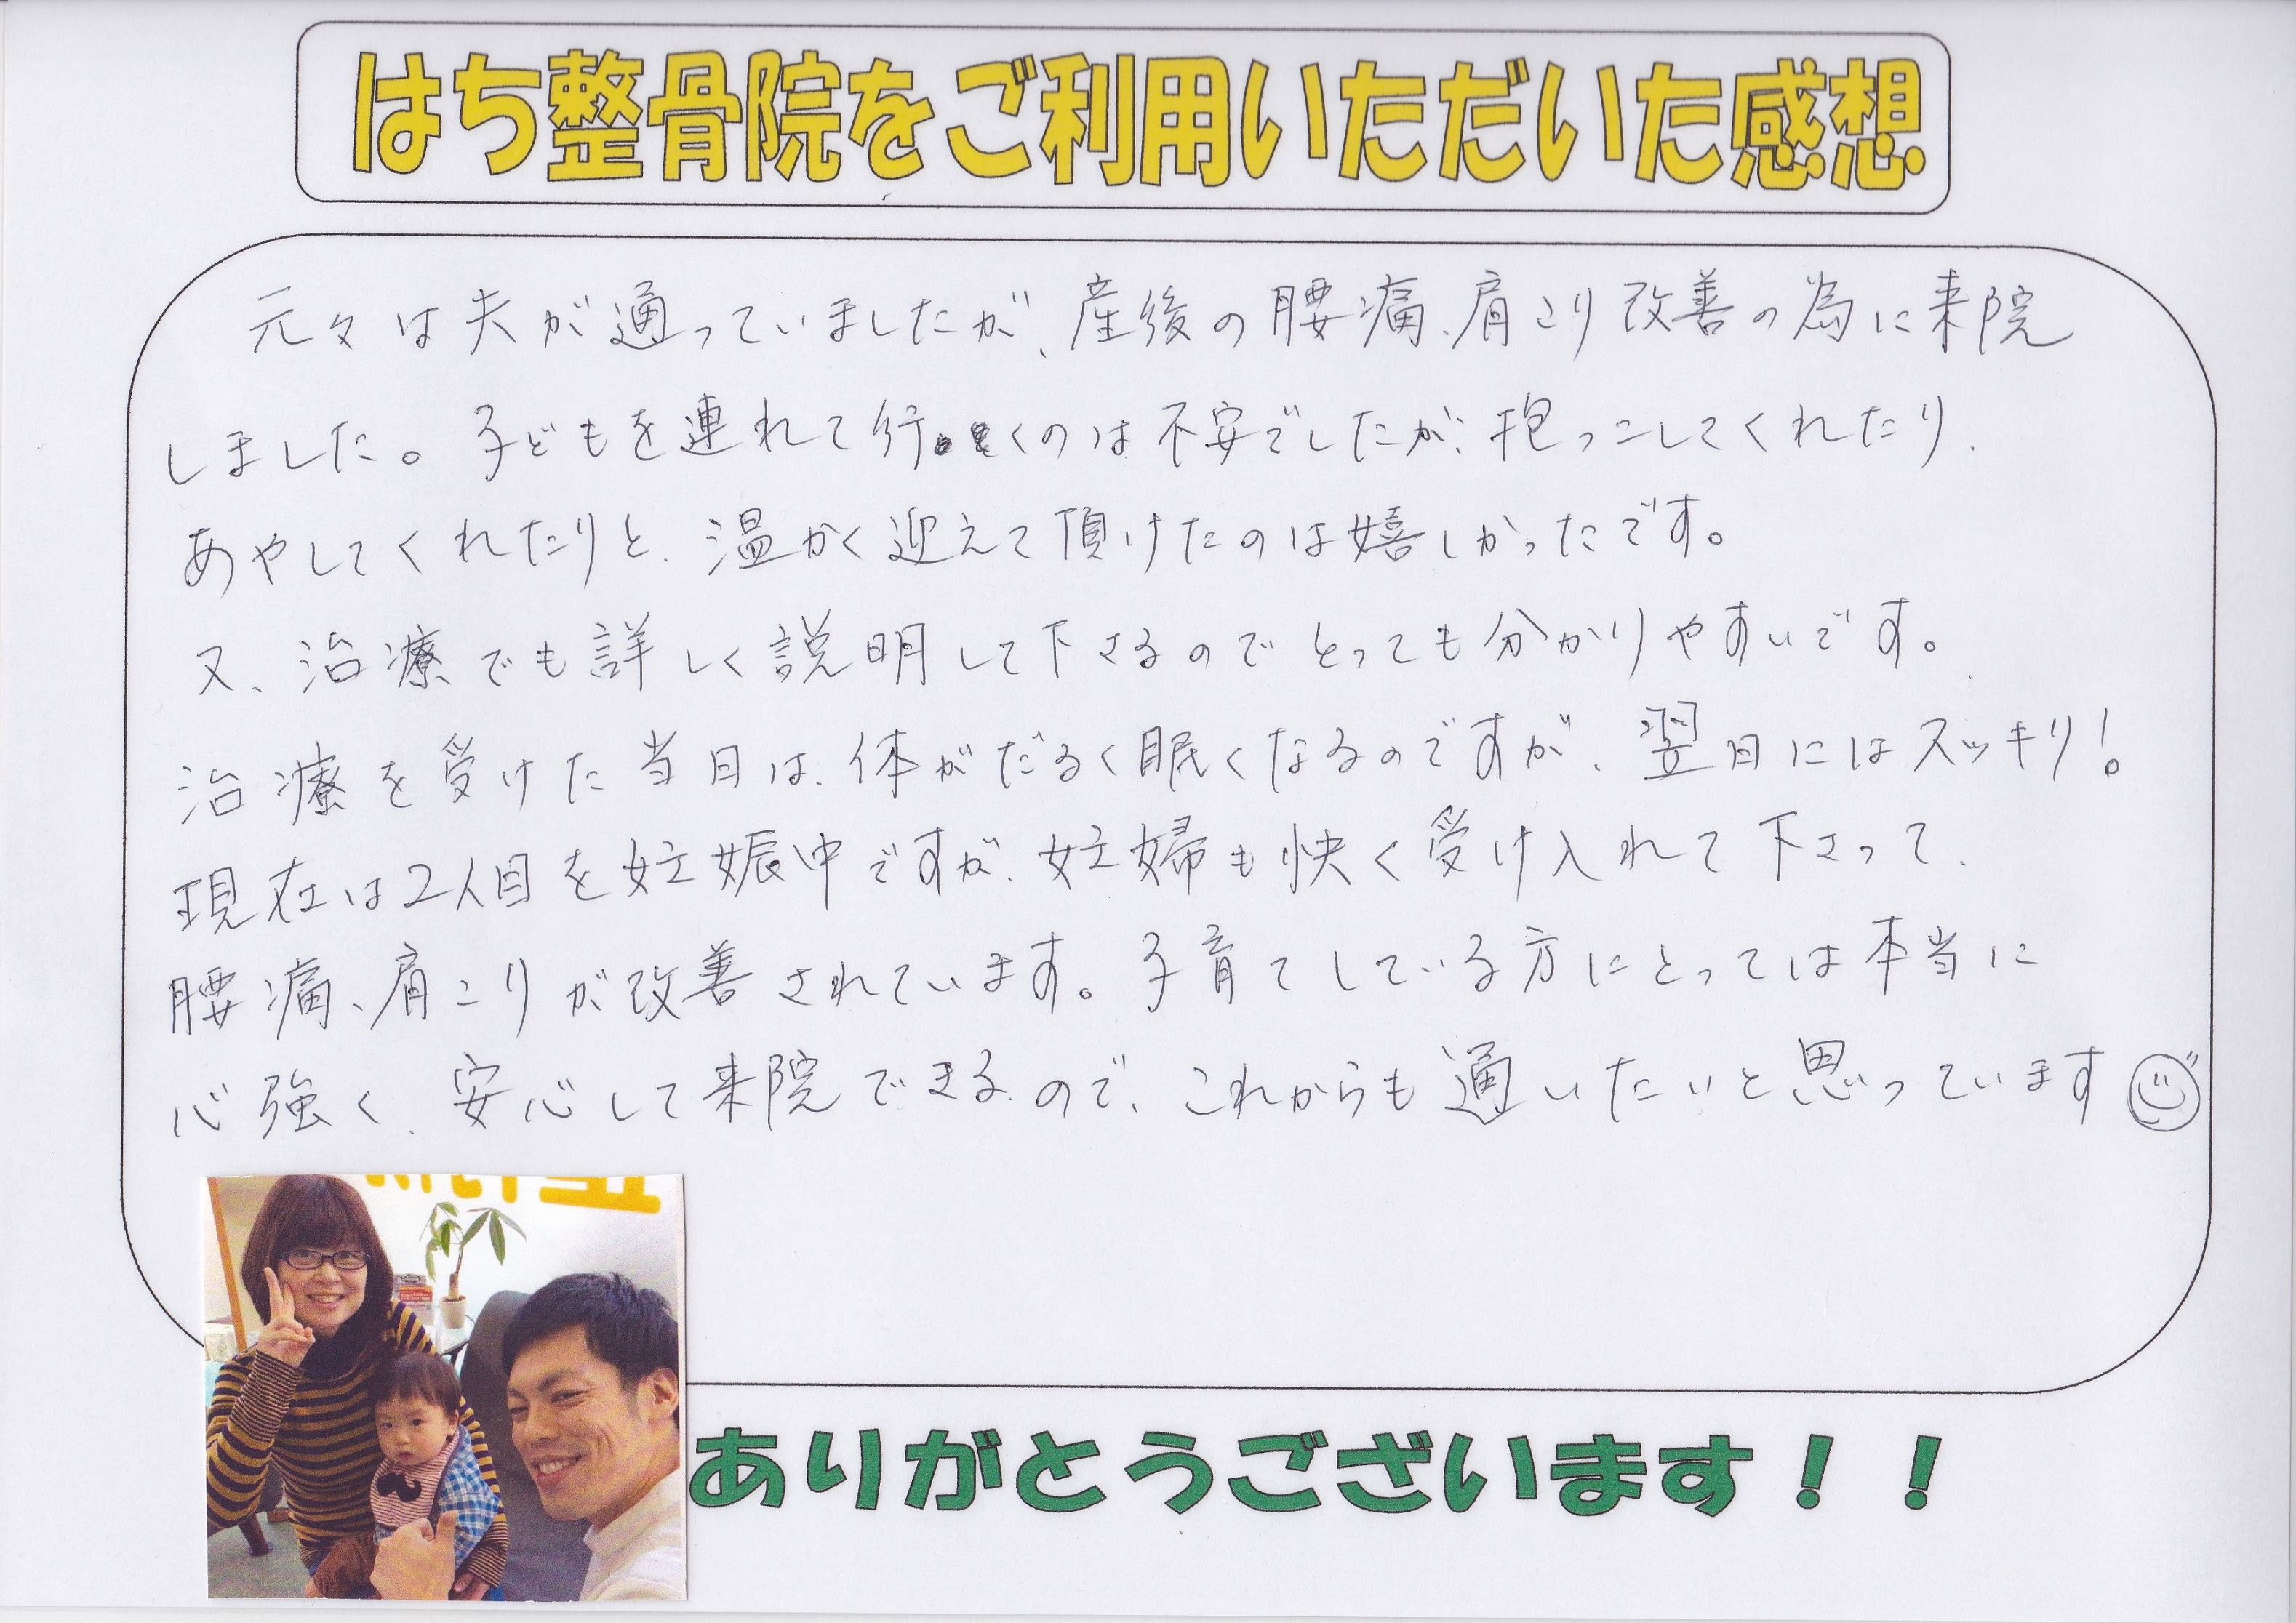 はち整骨院をご利用いただいた感想
元々は夫が通っていましたが、産後の腰痛、肩こり改善の為に来院
しました。子どもを連れて行くのは不安でしたが、抱っこしてくれたり、
あやしてくれたりと、温かく迎えて頂けたのは嬉しかったです。
又、治療でも詳しく説明して下さるのでとっても分かりやすいです。
治療を受けた当日は、体がだるく眠くなるのですが、翌日にはスッキリ!
現在は2人目を妊娠中ですが、妊婦も快く受け入れて下さって、
腰痛、肩こりが改善されています。子育てしている方にとっては本当に
心強く、安心して来院できるので、これからも通いたいと思っています
ありがとうございます！！